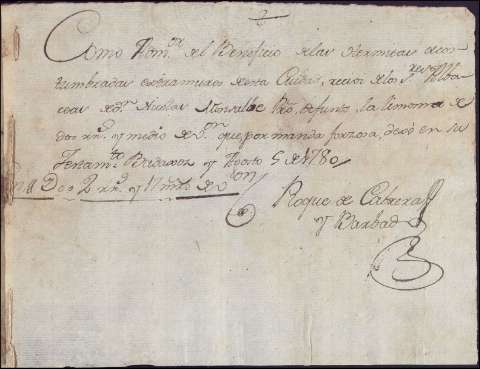 Como Tom.ro del Beneficio de las Hermitas acos-
tumbradas extramuros de esta Ciudad, recivi de los S.res Alba-
ceas de D.n Nicolas Pro, defunto, la limosna de
dos rr.s y medio de v.on que por manda forzosa, dexó en su
Testam.to y Agosto 5 de 1780
Dos rr.s y de v.on
Roque de Cabrera
y Barbad